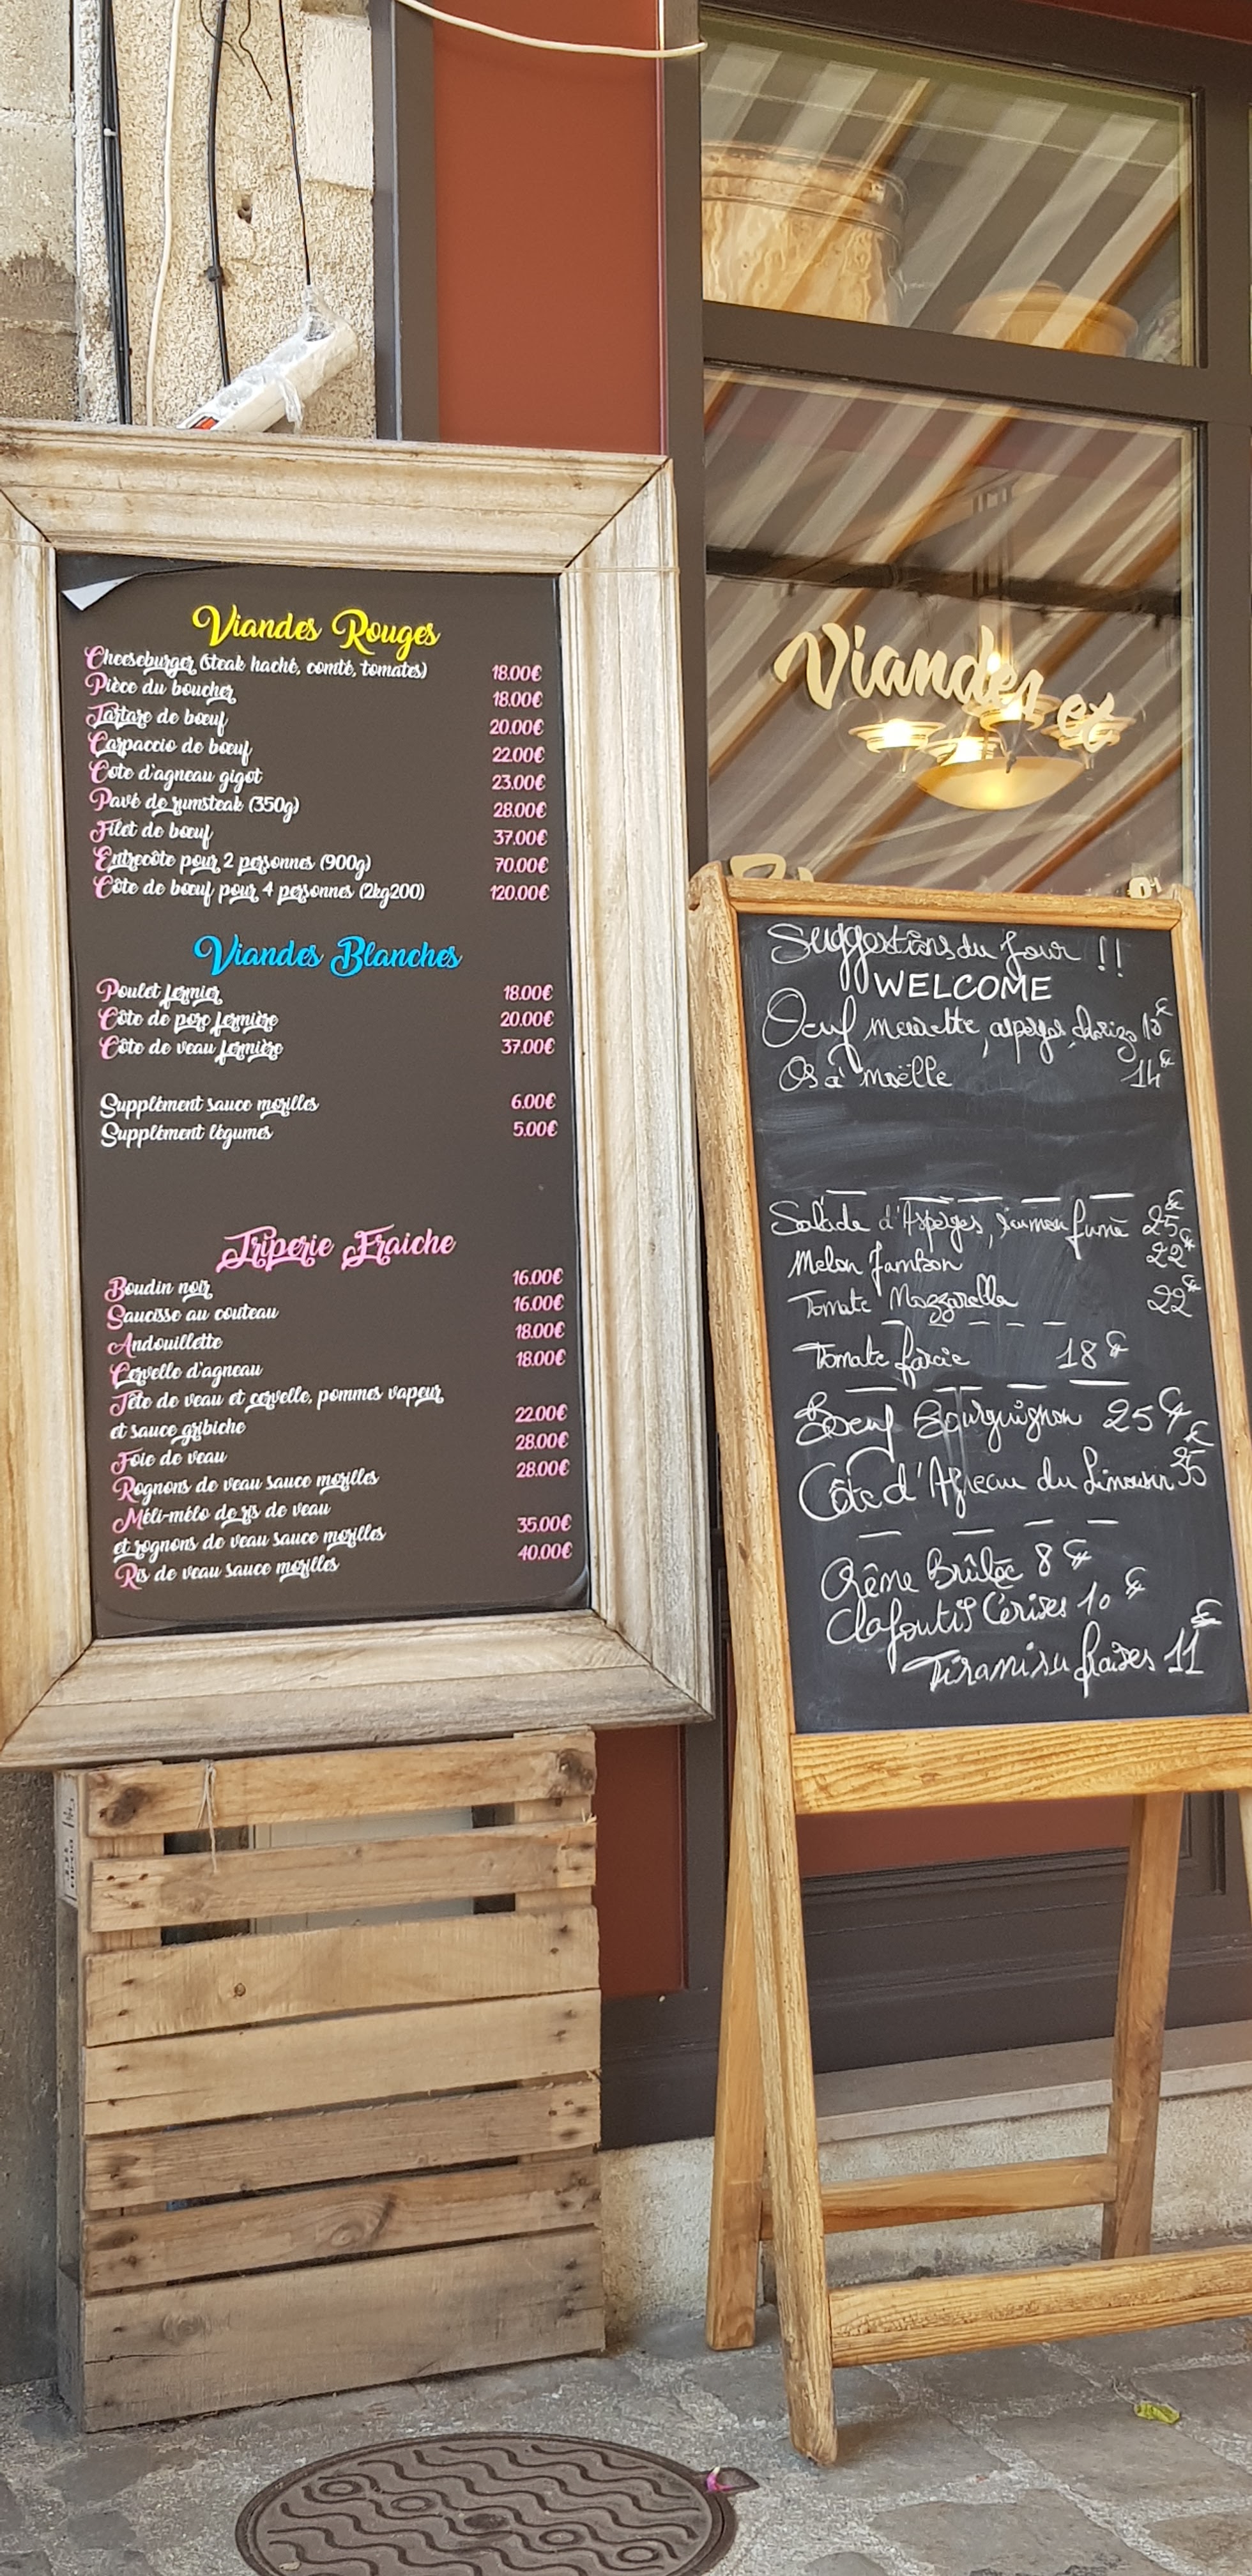 Viandes Rouges
Cheeseburger (steak haché, comté, tomates) 18.00€
Pièce du boucher 18.00€
Tartare de bœuf 20.00€
Carpaccio de bœuf 22.00€
Côte d'agneau gigot 23.00€
Pavé de rumsteak (350g) 28.00€
Filet de bœuf 37.00€
Entrecôte pour 2 personnes (900g) 70.00€
Côte de bœuf pour 4 personnes (2kg200) 120.00€
Viandes Blanches
Poulet fermier 18.00€
Côte de porc fermière 20.00€
Côte de veau fermière 37.00€
Supplément sauce morilles 6.00€
Supplément légumes 5.00€
Triperie Fraiche
Boudin noir 16.00€
Saucisse au couteau 16.00€
Andouillette 18.00€
Cervelle d'agneau 18.00€
Tête de veau et cervelle, pommes vapeur
et sauce gribiche 22.00€
Foie de veau 28.00€
Rognons de veau sauce morilles 28.00€
Méli-mélo de ris de veau
et rognons de veau sauce morilles 35.00€
Ris de veau sauce morilles 40.00€
Viandes et
Suggestions du Jour !!
WELCOME
Oeuf meurette, asperges, chorizo
Os à moëlle 14€
Salade d'Asperges, saumon fumé 25€
Melon Jambon 22€
Tomate Mozzarella 22€
Tomate farcie 18€
Boeuf Bourguignon 25€
Côte d'Agneau du Limousin 35€
Crême Brûlée 8€
Clafoutis Cerises 10€
Tiramisu fraises 11€